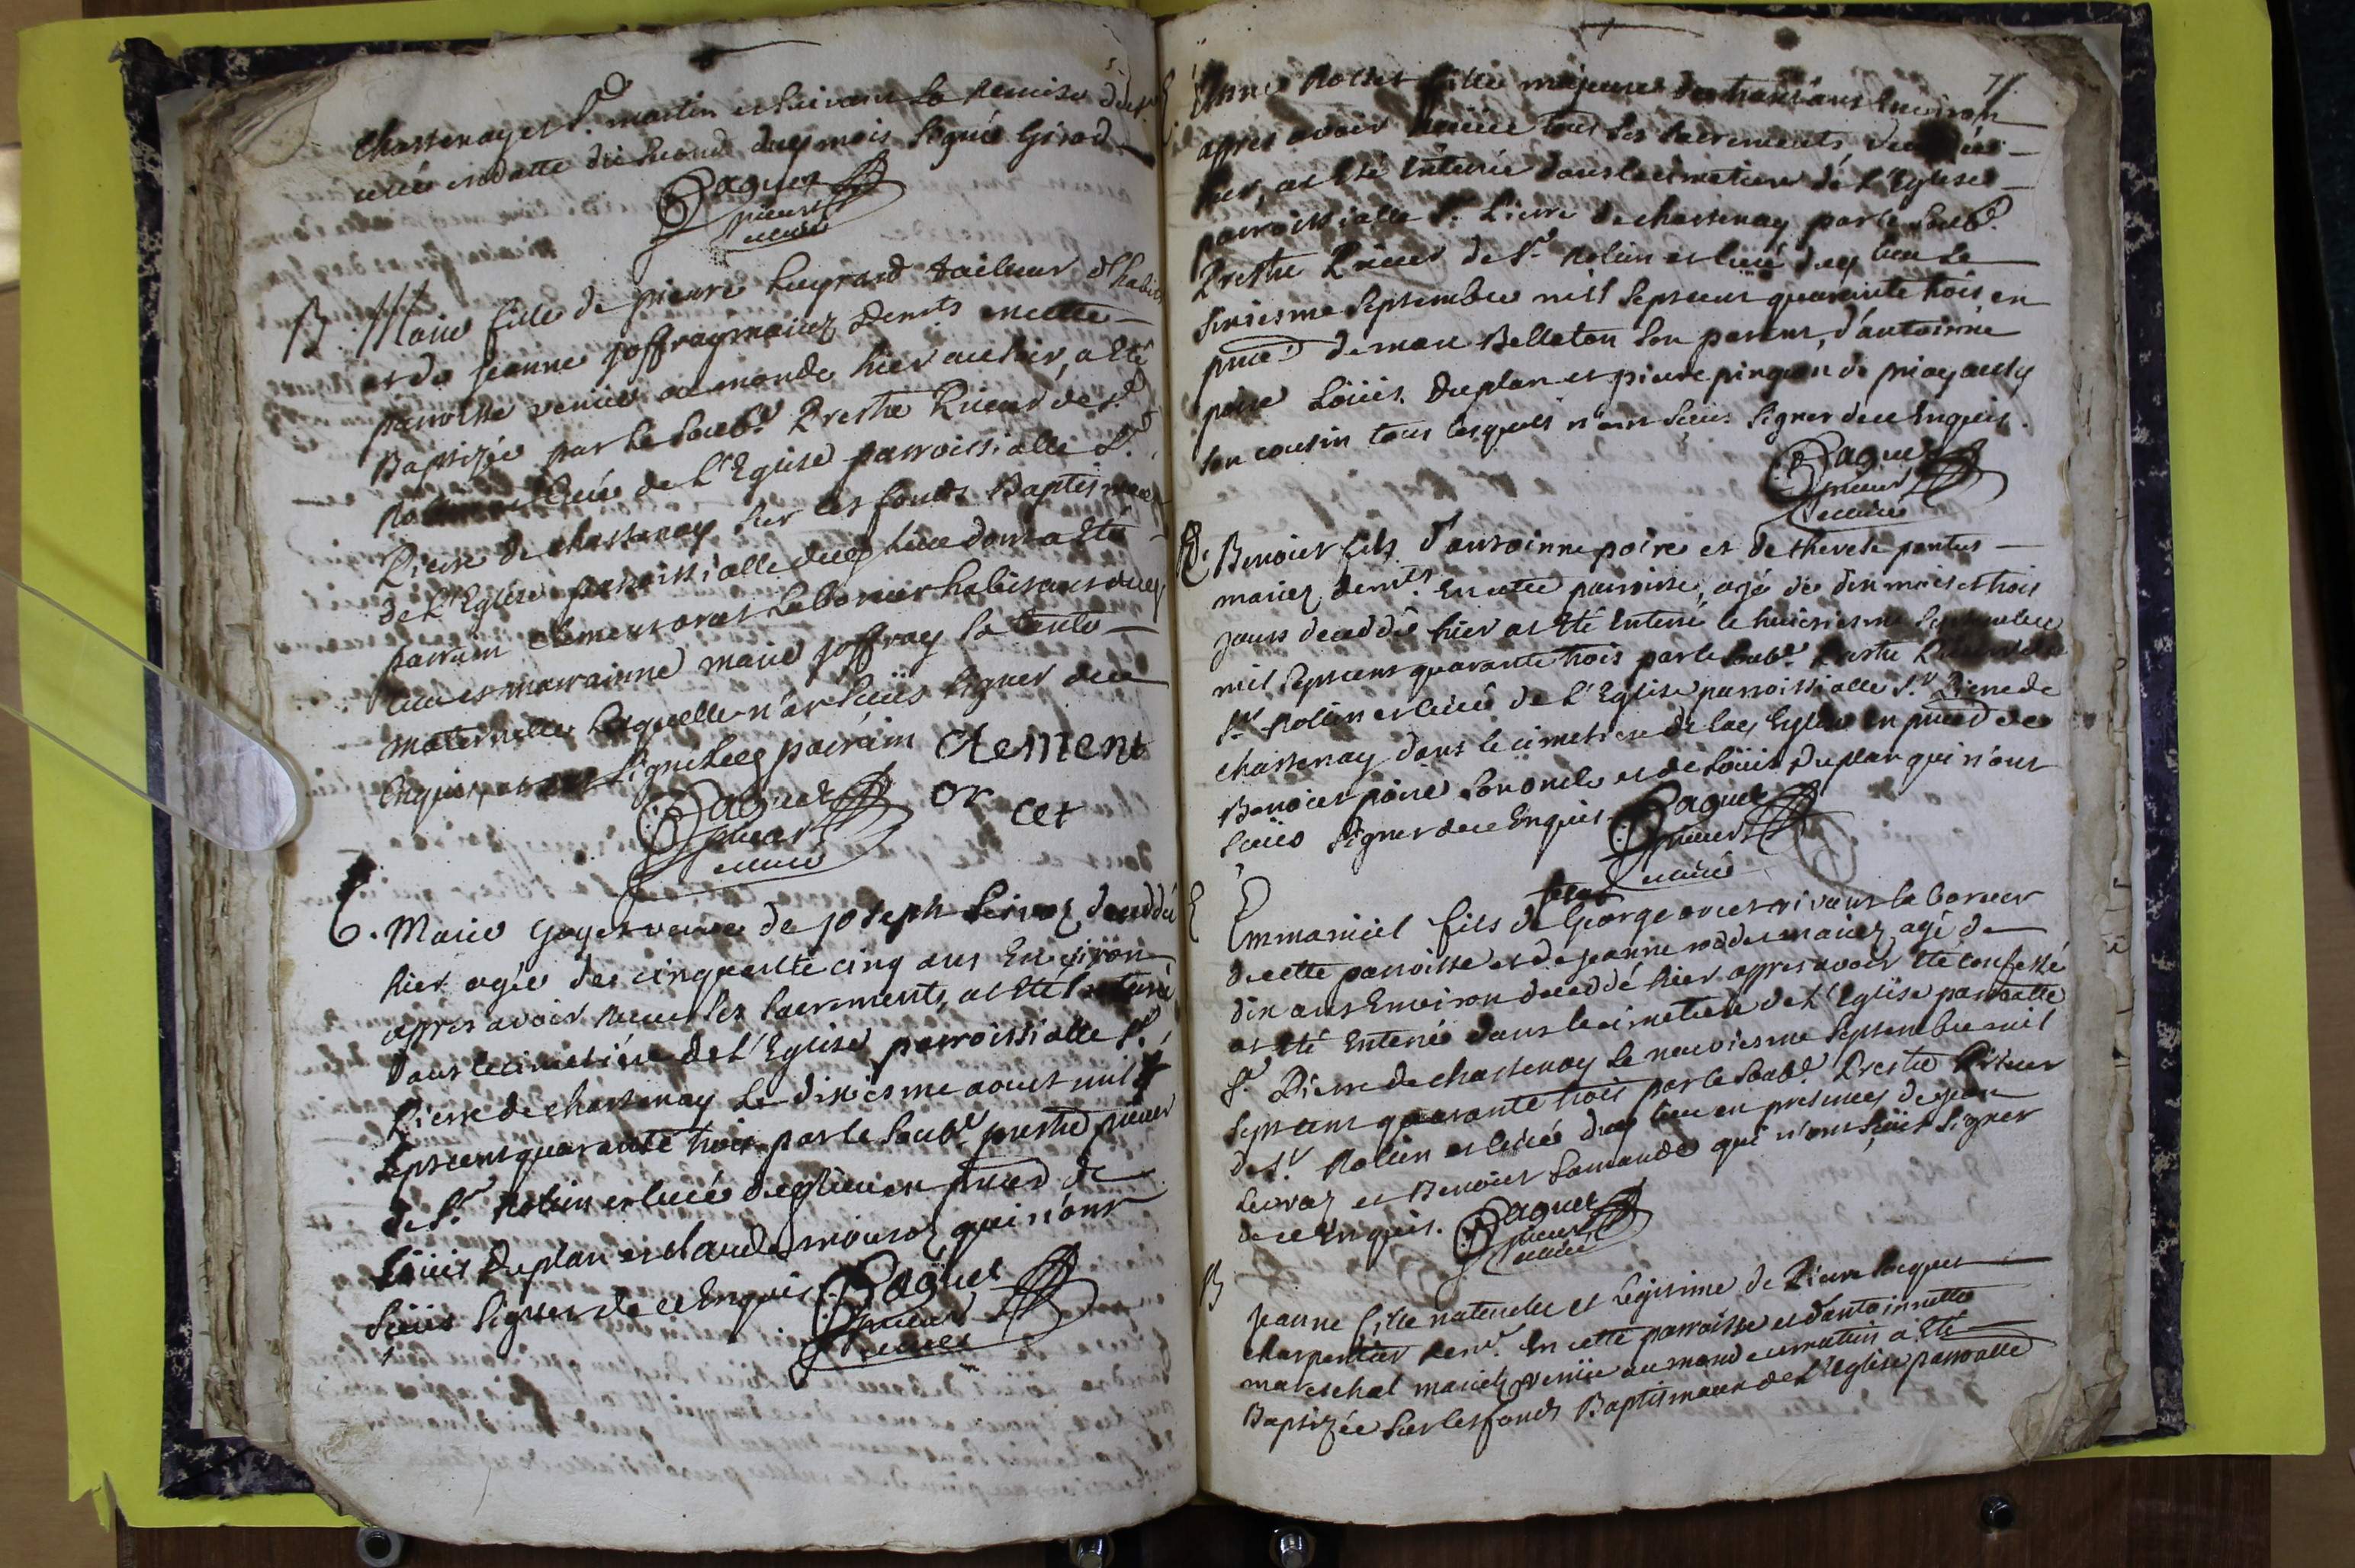 chastenay et St. martin et suivant la remise
curé en datte du second dud mois signée Girod
Paquet
prieur
et curé
B. Marie fille de pierre Leyrard tailleur d'habit
et de jeanne joffray mariez demts en cette
parroisse venüe au monde hier au soir, a eté
Baptizée par le soubs. Prestre Prieur de St.
et Curé de l'Eglise parroissialle St.
Pierre de chastenay sur les fonds Baptismaux
de l'Eglise parroissialle dud lieu dont a eté
parrain Clement orcet Laboureur habitant dud
lieu et marrainne marie joffray sa tante
maternelle laquelle n'at sçüs signer de ce
Enquis, signé led parrain Clement
Paquet or
prieur cet
et curé
E. Marie Goyet veuve de joseph deceddé
hier agée de cinquante cinq ans Environ
appres avoir receu les sacrements, at eté Enterré
dans le cimetiére de l'Eglise parroissialle St.
Pierre de chastenay Le dixiesme aoust mil
septcent quarante trois par le soubs. prestre prieur
de St. Rolin et Curé dud lieu en pnce de
Loüis Duplan et claude qui n'ont
sçüis signer de ce Enquis Paquet
prieur
et curé
71
Anne Rosset fille majeure de trent'ans Environ
appres avoir receüe tous ses sacrements,
hier, at eté Enterrée dans le cimetiere de l'Eglise
parroissialle St. Pierre de chastenay par le soubs.
Prestre Prieur de St. Rolin et Curé dud lieu Le
sixiesme septembre mil septcent quarante trois en
pnce de marc Belleton son parent, d'antoinne
poire Loüis Duplan et pierre pinguon de priay
son cousin tous lesquels n'ont sçüs signer de ce Enquis.
Paquet
prieur
et curé
E. Benoist fils d'antoinne poire et de therese pantus
mariez demts. En cette parroisse, agé de dix mois et trois
jours deceddé hier at eté Enterré le huictiesme septembre
mil septcent quarante trois par le soubs. Prestre Prieur de
St. Rolin et Curé de l'Eglise parroissialle St. Pierre de
chastenay dans le cimetiere de lad Eglise en pnce de
Benoist poire son oncle et de Loüis Duplan qui n'ont
sçüs signer de ce Enquis Paquet
prieur
et curé
E
Emmanüel fils de George orcet vivant laboureur
de cette parroisse et de jeanne mariez, agé de
dix ans Environ deceddé hier appres avoir eté confessé
at eté Enterré dans le cimetiere de l'Eglise parroalle
St. Pierre de chastenay le neuviesme septembre mil
septcent quarante trois par le soubs. Prestre Prieur
de St. Rolin et Curé dud lieu en presence de jean
et Benoist qui n'ont sçüs signer
de ce Enquis. Paquet
prieur
et curé
B
Jeanne fille naturelle et Legitime de Pierre
charpentier demt. En cette parroisse et d'antoinnette
mareschal mariez, venüe au monde ce matin a eté
Baptizée sur les fonds Baptismaux de l'Eglise parroalle